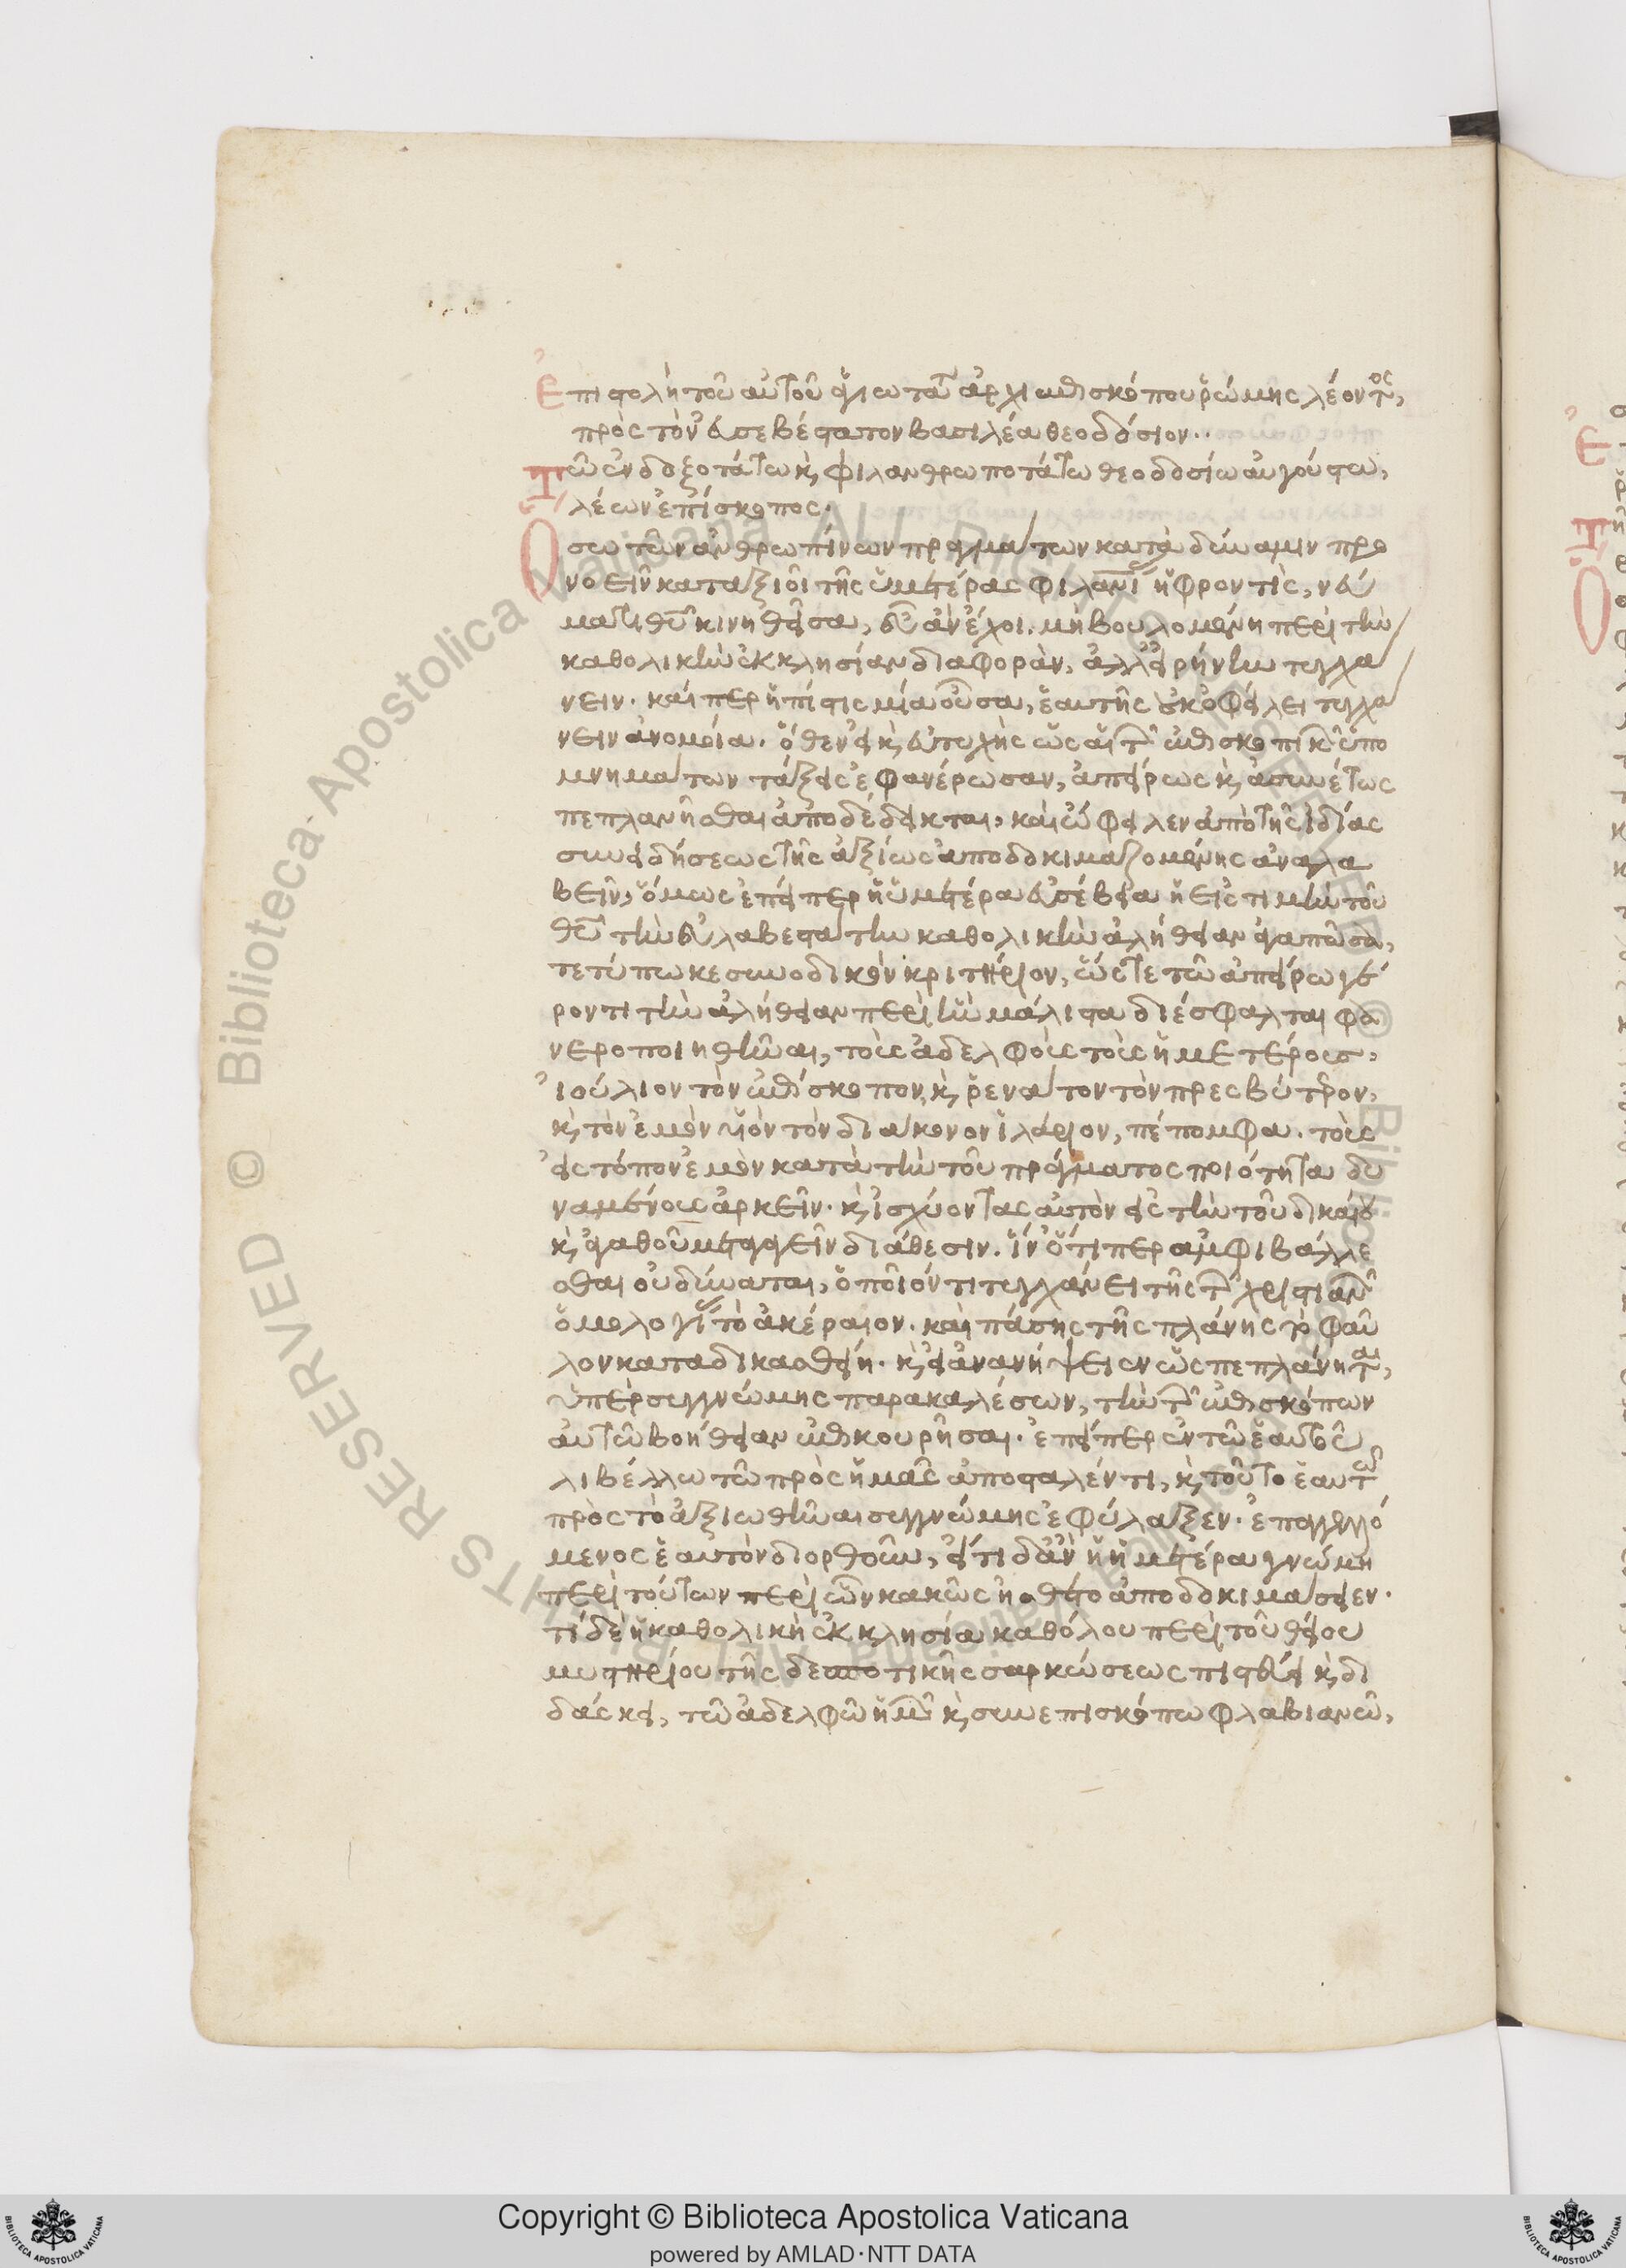 Ἐπιστολὴ τοῦ αὐτοῦ ἁγιωτάτου ἀρχιεπισκόπου ῥώμης λέοντος,
πρὸς τὸν εὐσεβέστατον βασιλέα θεοδόσιον..
Τῶ ἐνδοξοτάτω καὶ φιλανθρωποτάτω θεοδοσίω αὐγούστω,
λέων ἐπίσκοπος.
Ὅσω τῶν ἀνθρωπίνων πραγμάτων κατὰ δύναμιν προ
νοεῖν καταξιοῖ τῆς ὑμετέρας φιλανθρωπίας ἡ φροντὶς, νεύ
ματι θεοῦ κινηθεῖσα, μὴ βουλομένη περὶ τὴν
καθολικὴν ἐκκλησίαν διαφορὰν, ἀλλ' εἰρήνην τυγχά
νειν. καίπερ ἡ πίστις μία οὖσα, ἑαυτῆς οὐκ ὀφείλει τυγχά
νειν ἀνομοία. ὅθεν εἰ καὶ εὐτυχὴς ὡς αἱ τῶν ἐπισκοπικῶν ὑπο
μνημάτων τάξεις ἐφανέρωσαν, ἀπείρως καὶ ἀσυνέτως
πεπλανῆσθαι ἀποδέδεικται, καὶ ὤφειλεν ἀπὸ τῆς ἰδίας
συνειδήσεως τῆς ἀξίως ἀποδοκιμαζομένης ἀναλα
βεῖν, ὅμως ἐπείπερ ἡ ὑμετέρα εὐσέβεια ἡ εἰς τιμὴν τοῦ
θεοῦ τὴν εὐλαβεστάτην καθολικὴν ἀλήθειαν ἀγαπῶσα,
τετύπωκε συνοδικὸν κριτήριον, ὥστε τῶ ἀπείρω γέ
ροντι τὴν ἀλήθειαν περὶ ἣν μάλιστα διέσφαλται φα
νεροποιηθῆναι, τοὺς ἀδελφοὺς τοὺς ἡμετέρους,
ἰούλιον τὸν ἐπίσκοπον, καὶ ῥενάτον τὸν πρεσβύτερον,
καὶ τὸν ἐμὸν υἱὸν τὸν διάκονον ἱλάριον, πέπομφα. τοὺς
εἰς τόπον ἐμὸν κατὰ τὴν τοῦ πράγματος ποιότητα δυ
ναμένους ἀρκεῖν. καὶ ἰσχύοντας αὐτὸν εἰς τὴν τοῦ δικαίου
καὶ ἀγαθοῦ μεταγαγεῖν διάθεσιν. ἵν' ὅτιπερ ἀμφιβάλλε
σθαι οὐ δύναται, ὁποῖόν τι τυγχάνει τῆς τῶν χριστιανῶν
ὁμολογίας τὸ ἀκέραιον. καὶ πάσης τῆς πλάνης τὸ φαῦ
λον καταδικασθείη. καὶ εἰ ἀνανήψειεν ὡς πεπλάνηται,
ὑπὲρ συγγνώμης παρακαλέσων, τὴν τῶν ἐπισκόπων
αὐτῶ βοήθειαν ἐπικουρῆσαι. ἐπείπερ ἐν τῶ ἑαυτοῦ
λιβέλλω τῶ πρὸς ἡμᾶς ἀποσταλέντι, καὶ τοῦτο ἑαυτῶ
πρὸς τὸ ἀξιωθῆναι συγγνώμης ἐφύλαξεν. ἐπαγγελλό
μενος ἑαυτὸν διορθοῦν, εἴ τι δἂν ἡ ἡμετέρα γνώμη
περὶ τούτων περὶ ὧν κακῶς ἤσθετο ἀποδοκιμάσειεν.
τί δὲ ἡ καθολικὴ ἐκκλησία καθόλου περὶ τοῦ θείου
μυστηρίου τῆς δεσποτικῆς σαρκώσεως πιστεύει καὶ δι
δάσκει, τῶ ἀδελφῶ ἡμῶν καὶ συνεπισκόπω φλαβιανῶ,
Copyright © Biblioteca Apostolica Vaticana
powered by AMLAD·NTT DATA